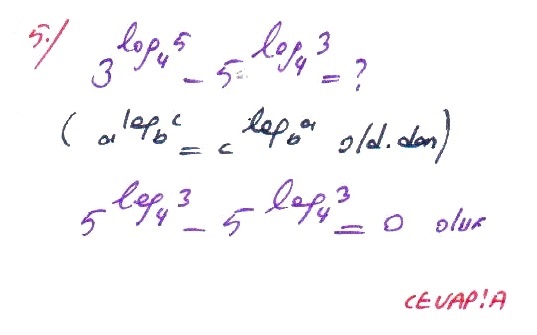 5./ 3^log₄5 - 5^log₄3 = ?
( a^log_b c = c^log_b a old.dan)
5^log₄3 - 5^log₄3 = 0 olur
CEVAP!A